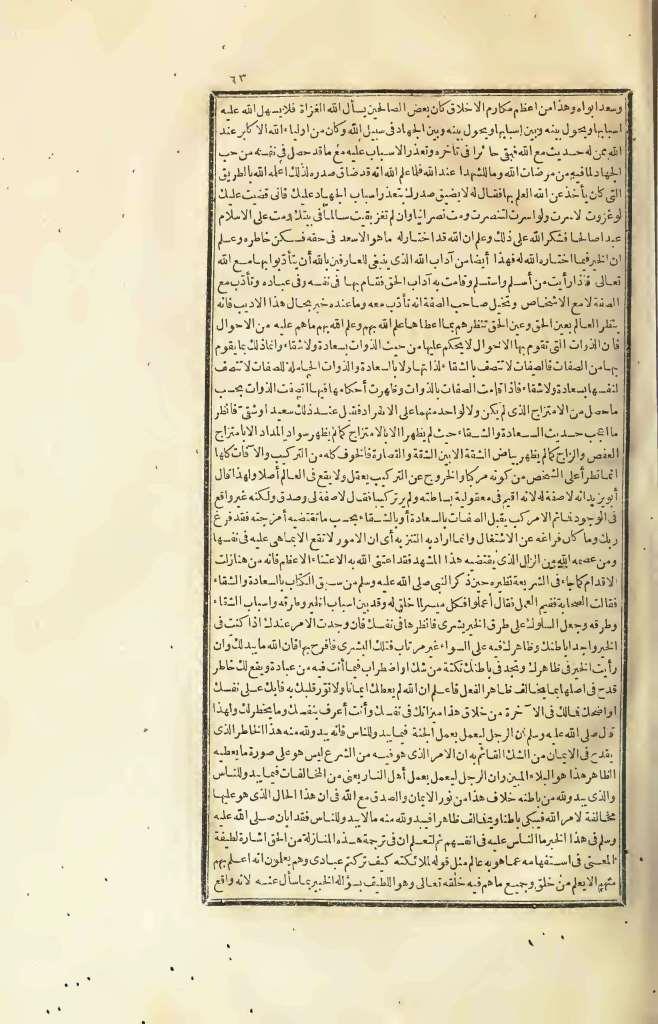 ٦٣
وسعد ابواه وهذا من اعظم مكارم الاخلاق كان بعض الصالحين يسأل الله الغزاة فلا يسهل الله عليه
اسبابها ويحول بينه وبين اسبابها ويحول بينه وبين الجهاد فى سبيل الله وكان من اولياء الله الاكابر عند
الله ممن له حديث مع الله فبقى حائرا فى تأخره وتعذر الاسباب عليه مع ما قد حصل فى نفسه من حب
الجهاد لما فيه من مرضات الله وما للشهدا عند الله فلما علم الله انه قد ضاق صدره لذلك اعلمه الله بالطريق
التى كان يأخذ عن الله العلم بها فقال له لا يضيق صدرك بتعذر اسباب الجهاد عليك فانى قضيت عليك
لو غزوت لاسرت ولو اسرت لتنصرت ومت نصرانيا وان لم تغز بقيت سالما فى بيتك ومت على الاسلام
عبدا صالحا فشكر الله على ذلك وعلم ان الله قد اختار له ما هو الاسعد فى حقه فسكن خاطره وعلم
ان الخير فيما اختاره الله له فهذا أيضا من آداب الله الذى ينبغى للعارفين بالله أن يتأدبوا بها مع الله
تعالى فاذا رأيت من أسلم واستسلم وقامت به آداب الحق فقام بها فى نفسه وفى عباده وتأدب مع
الصفة لا مع الاشخاص وتخيل صاحب الصفة انه تأدب معه وما عنده خبر بحال هذا الاديب فانه
ينظر العالم بعين الحق وعين الحق تنظرهم بما اعطاها علم الله بهم وعلم الله بهم ما هم عليه من الاحوال
فان الذوات التى تقوم بها الاحوال لا يحكم عليها من حيث الذوات بسعادة ولا شقاء وانما ذلك بما يقوم
بها من الصفات فالصفات لا تتصف بالشقاء لذاتها ولا بالسعادة والذوات الحاملة للصفات لا تتصف
لنفسها بسعادة ولا شقاء فاذا قامت الصفات بالذوات وظهرت أحكامها فيها اتصفت الذوات بحسب
ما حصل من الامتزاج الذى لم يكن ولا لواحد منهما على الانفراد فقيل عند ذلك سعيد او شقى فانظر
ما اعجب حديث السعادة والشقاء حيث لم يظهر الا بالامتزاج كما لم يظهر سواد المداد الا بامتزاج
العفص والزاج كما لم يظهر بياض الشقة الا بين الشقة والقصارة فالخوف كله من التركيب والآفات كلها
انما تطرأ على الشخص من كونه مركبا والخروج عن التركيب يعقل ولا يقع فى العالم أصلا ولهذا قال
أبو يزيد انه لا صفة له لانه اقيم فى معقولية بساطته ولم ير تركيبا فقال لا صفة لى وصدق ولكنه غير واقع
فى الوجود فاثم الا مركب يقبل الصفات بالسعادة أو بالشقاء بحسب ما تقتضيه أمزجته فقد فرغ
ربك وما كان فراغه عن الاشتغال وانما اراد به التنزيه أى ان الامور لا تقع الا بما هى عليه فى نفسها
ومن عصمه الله من الزلل الذى يقتضيه هذا المشهد فقد اعتنى الله به الاعتناء الاعظم فانه من منازلات
الاقدام كما جاء فى الشريعة نظيره حين ذكر النبى صلى الله عليه وسلم من سبق الكتاب بالسعادة والشقاء
فقالت الصحابة ففيم العمل فقال اعملوا فكل ميسر لما خلق له وقد بين اسباب الخير وطرقه واسباب الشقاء
وطرقه وجعل السلوك على طرق الخير بشرى فانظرها فى نفسك فان وجدت الامر عندك اذا كنت فى
الخير واجدا باطنك وظاهرك فيه على السواء غير مرتاب فتلك البشرى فافرح بها فان الله ما يبدلك وان
رأيت الخير فى ظاهرك وتجد فى باطنك نكتة من شك او اضطراب فيما أنت فيه من عبادة ويقع لك خاطر
قدح فى اصلها بما يخالف ظاهر الفعل فاعلم ان الله لم يعطك ايمانا ولا نور قلبك به فابك على نفسك
او اضحك فمالك فى الآخرة من خلاق هذا ميزانك فى نفسك وأنت أعرف بنفسك وما يخطر لك ولهذا
قال صلى الله عليه وسلم ان الرجل ليعمل بعمل الجنة فيما يبدو للناس فانه يبدو لله منه هذا الخاطر الذى
يقدح فى الايمان من الشك القائم به ان الامر الذى هو فيه من الشرع ليس هو على صورة ما يعطيه
الظاهر هذا هو البلاء المبين وان الرجل ليعمل بعمل أهل النار يعنى من المخالفات فيما يبدو للناس
والذى يبدو لله من باطنه خلاف هذا من نور الايمان والصدق مع الله فى ان هذا الحال الذى هو عليها
مخالفة لامر الله فيبكى باطنا ويخالف ظاهرا فيبدو لله منه ما لا يبدو للناس فقد ابان صلى الله عليه
وسلم فى هذا الخبر ما الناس عليه فى انفسهم ثم لتعلم ان فى ترجمة هذه المنازلة من الحق اشارة لطيفة
المعنى فى استفهامه عما هو به عالم مثل قوله لملائكته كيف تركتم عبادى وهم يعلمون انه اعلم بهم
منهم الا يعلم من خلق وجميع ما هم فيه خلقه تعالى وهو اللطيف بسؤاله الخبير بما سأل عنه لانه واقع